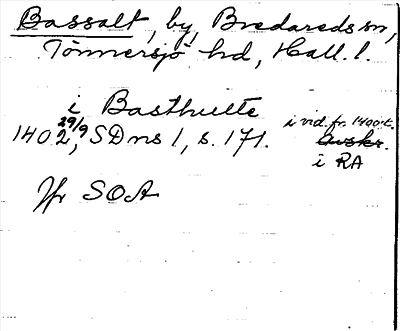 Bassalt, by, Bredareds sn,
Tönnersjö hd, Hall. l.
i Basthulte
1402 29/9, SD ns 1, s. 171.
i vid. fr. 1400-t.
Avskr.
i RA
Jfr SOA